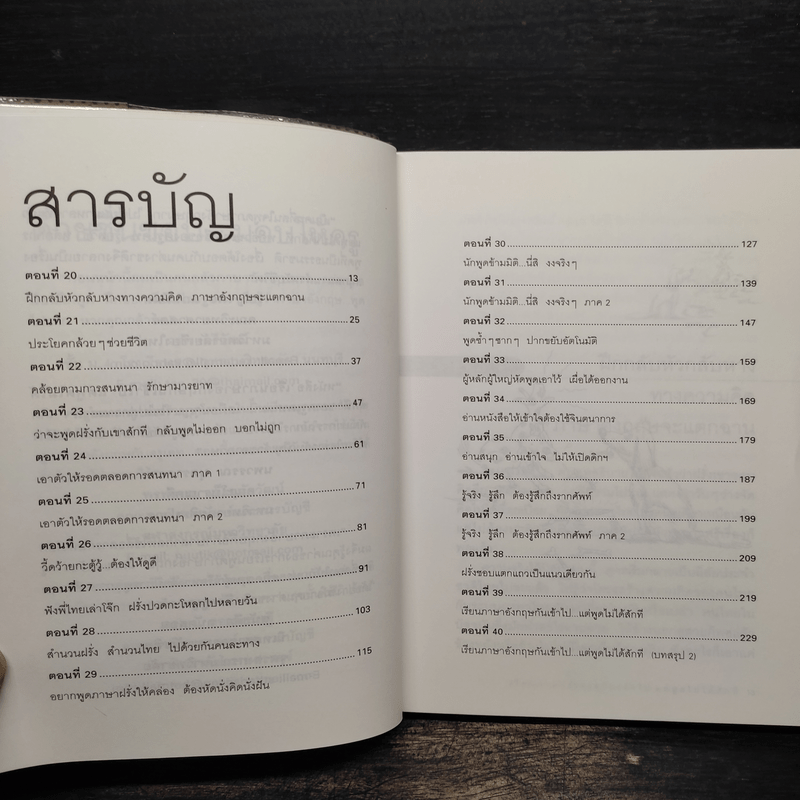 สารบัญ
ตอนที่ 20 ........ 13
ฝึกกลับหัวกลับหางทางความคิด ภาษาอังกฤษจะแตกฉาน
ตอนที่ 21 ........ 25
ประโยคกล้วยๆ ช่วยชีวิต
ตอนที่ 22 ........ 37
คล้อยตามการสนทนา รักษามารยาท
ตอนที่ 23 ........ 47
ว่าจะพูดฝรั่งกับเขาสักที กลับพูดไม่ออก บอกไม่ถูก
ตอนที่ 24 ........ 61
เอาตัวให้รอดตลอดการสนทนา ภาค 1
ตอนที่ 25 ........ 71
เอาตัวให้รอดตลอดการสนทนา ภาค 2
ตอนที่ 26 ........ 81
วี้ดว้ายกะตู้วู้...ต้องให้ดูดี
ตอนที่ 27 ........ 91
ฟังพี่ไทยเล่าโจ๊ก ฝรั่งปวดกะโหลกไปหลายวัน
ตอนที่ 28 ........ 103
สำนวนฝรั่ง สำนวนไทย ไปด้วยกันคนละทาง
ตอนที่ 29 ........ 115
อยากพูดภาษาฝรั่งให้คล่อง ต้องหัดนั่งคิดนั่งฝัน
ตอนที่ 30 ........ 127
นักพูดข้ามมิติ...นี่สิ งงจริงๆ
ตอนที่ 31 ........ 139
นักพูดข้ามมิติ...นี่สิ งงจริงๆ ภาค 2
ตอนที่ 32 ........ 147
พูดซ้ำๆ ซากๆ ปากขยับอัตโนมัติ
ตอนที่ 33 ........ 159
ผู้หลักผู้ใหญ่หัดพูดเอาไว้ เผื่อได้ออกงาน
ตอนที่ 34 ........ 169
อ่านหนังสือให้เข้าใจต้องใช้จินตนาการ
ตอนที่ 35 ........ 179
อ่านสนุก อ่านเข้าใจ ไม่ให้เปิดดิกฯ
ตอนที่ 36 ........ 187
รู้จริง รู้ลึก ต้องรู้สึกถึงรากศัพท์
ตอนที่ 37 ........ 199
รู้จริง รู้ลึก ต้องรู้สึกถึงรากศัพท์ ภาค 2
ตอนที่ 38 ........ 209
ฝรั่งชอบแตกแถวเป็นแนวเดียวกัน
ตอนที่ 39 ........ 219
เรียนภาษาอังกฤษกันเข้าไป...แต่พูดไม่ได้สักที
ตอนที่ 40 ........ 229
เรียนภาษาอังกฤษกันเข้าไป...แต่พูดไม่ได้สักที (บทสรุป 2)